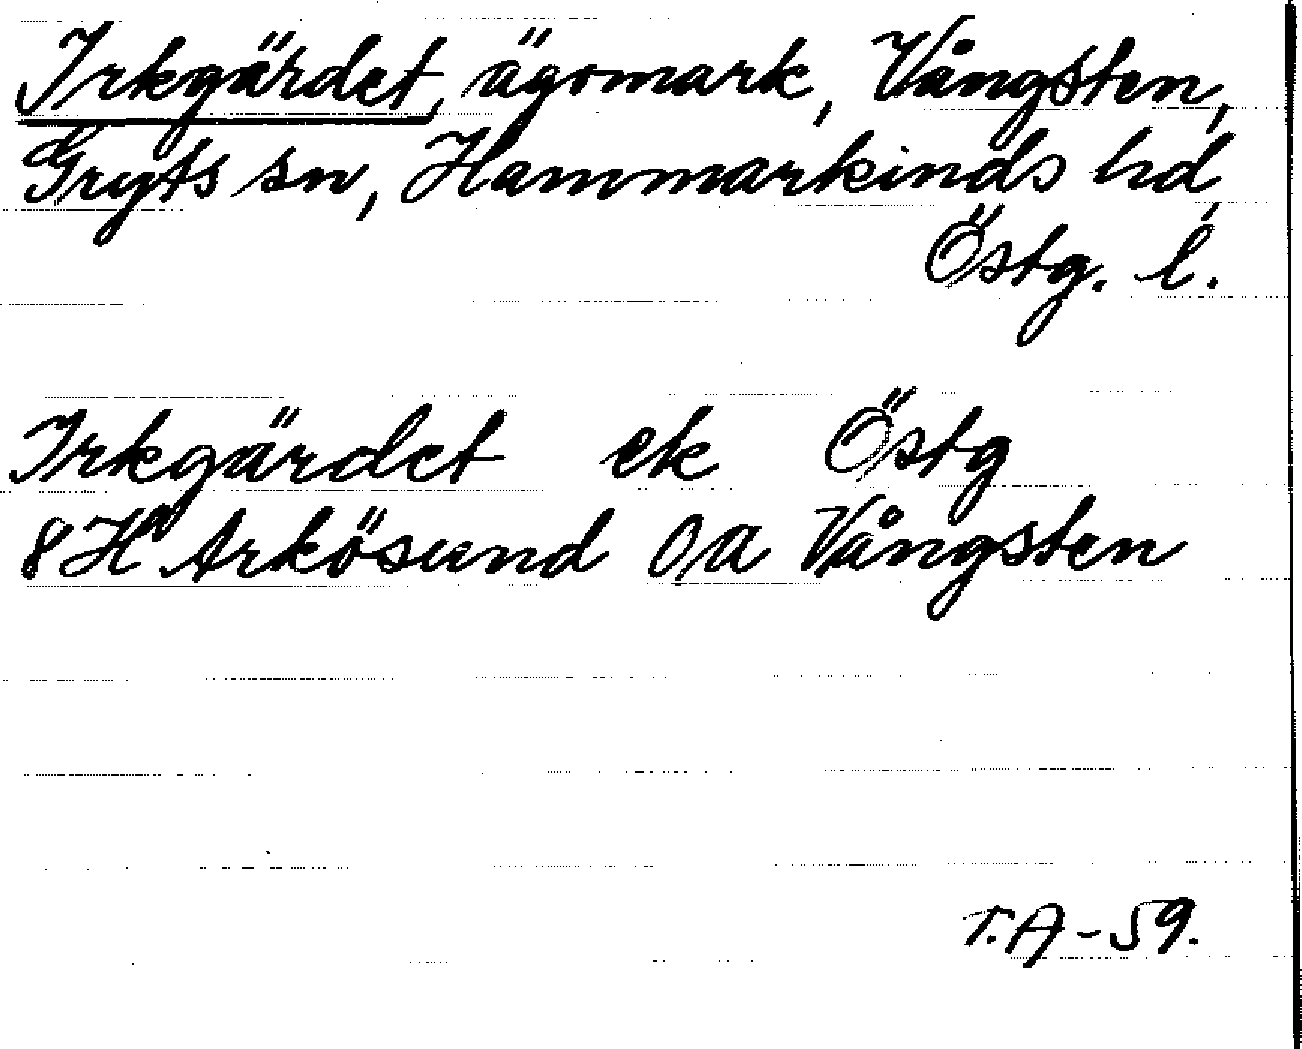 Irkgärdet, ägomark, Vångsten,
Gryts sn, Hammarkinds hd,
Östg. l.
Irkgärdet ek Östg
8H Arkösund O/A Vångsten
T.A-59.